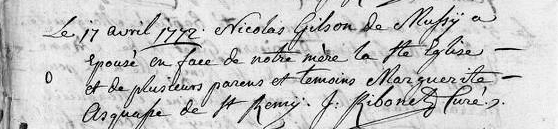 Le 17 avril 1772. Nicolas Gilson de Mussÿ a
Epousé en face de notre mère la Ste Eglise —
et de plusieurs parens et temoins Marguerite —
Asquape de St Remÿ. J. Ribonet Curé